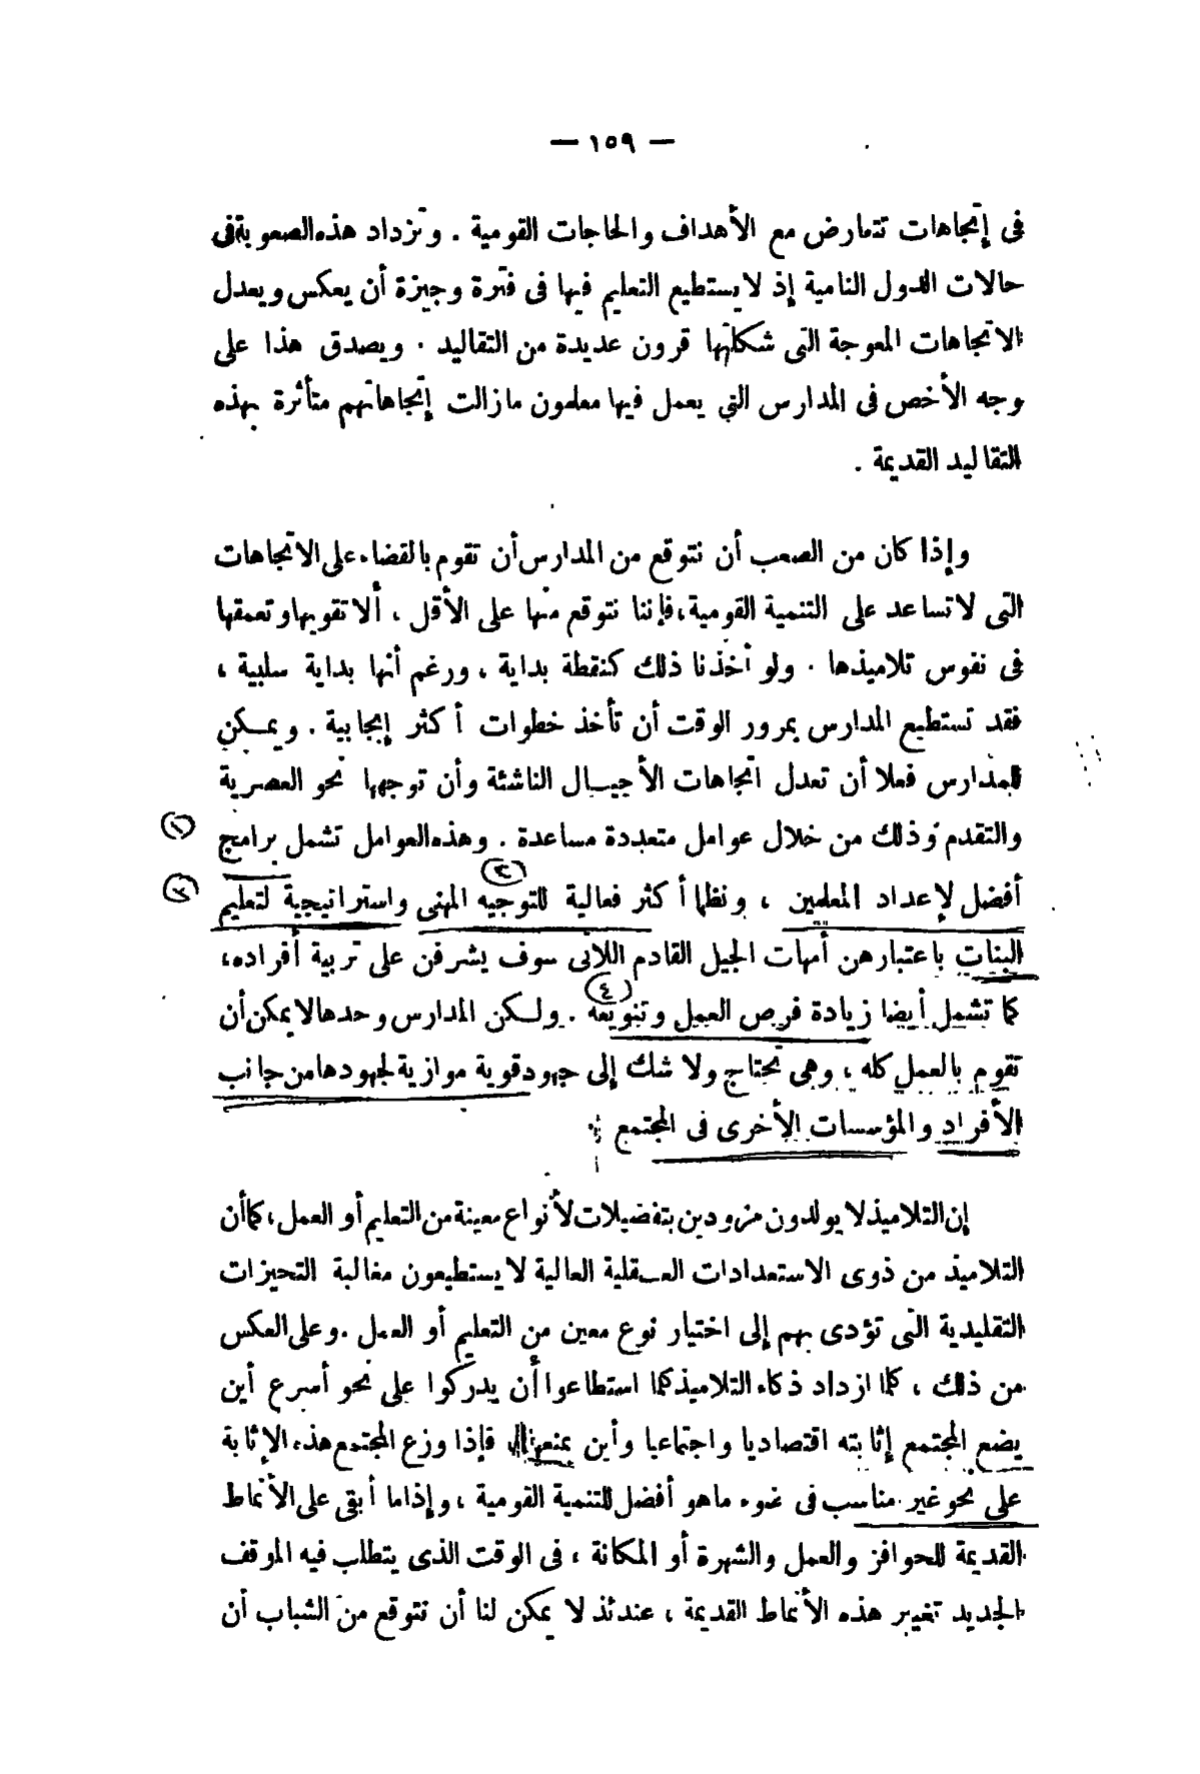 — ١٥٩ —
فى إتجاهات تتعارض مع الأهداف والحاجات القومية . وتزداد هذه الصعوبة فى
حالات الدول النامية إذ لا يستطيع التعليم فيها فى فترة وجيزة أن يعكس ويعدل
الاتجاهات المعوجة التى شكلتها قرون عديدة من التقاليد . ويصدق هذا على
وجه الأخص فى المدارس التي يعمل فيها معلمون مازالت إتجاهاتهم متأثرة بهذه
التقاليد القديمة .
وإذا كان من الصعب أن نتوقع من المدارس أن تقوم بالقضاء على الاتجاهات
التى لا تساعد على التنمية القومية، فإننا نتوقع منها على الأقل ، ألا تقويها وتعمقها
فى نفوس تلاميذها . ولو أخذنا ذلك كنقطة بداية ، ورغم أنها بداية سلبية ،
فقد تستطيع المدارس بمرور الوقت أن تأخذ خطوات أكثر إيجابية . ويمكن
للمدارس فعلا أن تعدل اتجاهات الأجيال الناشئة وأن توجهها نحو العصرية
والتقدم وذلك من خلال عوامل متعددة مساعدة . وهذه العوامل تشمل برامج
أفضل لإعداد المعلمين ، ونظما أكثر فعالية للتوجيه المهنى واستراتيجية لتعليم
البنات باعتبارهن أمهات الجيل القادم اللاتى سوف يشرفن على تربية أفراده،
كما تشمل أيضا زيادة فرص العمل وتنويعه . ولكن المدارس وحدها لا يمكن أن
تقوم بالعمل كله ، وهى تحتاج ولا شك إلى جهود قوية موازية لجهودها من جانب
الأفراد والمؤسسات الأخرى فى المجتمع .
إن التلاميذ لا يولدون مزودين بتفضيلات لأنواع معينة من التعليم أو العمل، كما أن
التلاميذ من ذوى الاستعدادات العقلية العالية لا يستطيعون مغالبة التحيزات
التقليدية التى تؤدى بهم إلى اختيار نوع معين من التعليم أو العمل . وعلى العكس
من ذلك ، كلما ازداد ذكاء التلاميذ كلما استطاعوا أن يدركوا على نحو أسرع أين
يضع المجتمع إثابته اقتصاديا واجتماعيا وأين يمنعها فإذا وزع المجتمع هذه الإثابة
على نحو غير مناسب فى ضوء ماهو أفضل للتنمية القومية ، وإذاما أبقى على الأنماط
القديمة للحوافز والعمل والشهرة أو المكانة ، فى الوقت الذى يتطلب فيه الموقف
الجديد تغيير هذه الأنماط القديمة ، عندئذ لا يمكن لنا أن نتوقع من الشباب أن